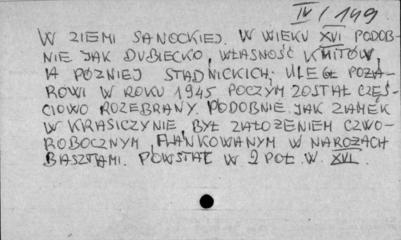 IV/149
W ZIEMI SANOCKIEJ. W WIEKU XVI PODOB-
NIE JAK DUBIECKO, WŁASNOŚĆ KMITÓW,
A PÓŹNIEJ STADNICKICH; ULEGŁ POŻA-
ROWI W ROKU 1945 POCZYM ZOSTAŁ CZĘŚ-
CIOWO ROZEBRANY. PODOBNIE JAK ZAMEK
W KRASICZYNIE, BYŁ ZAŁOŻENIEM CZWO-
ROBOCZNYM, FLANKOWANYM W NAROŻACH
BASZTAMI. POWSTAŁ W 2 POŁ. W. XVI.